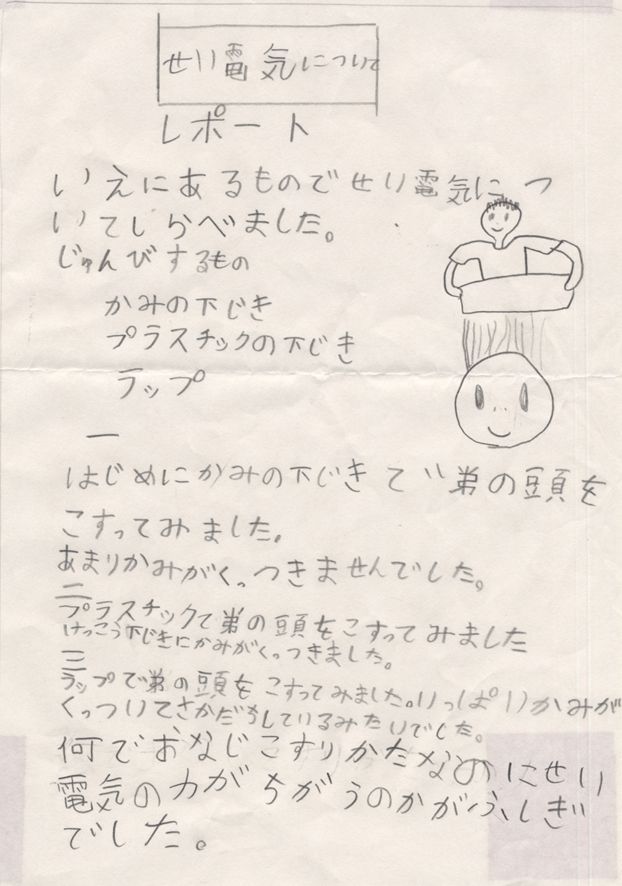 せい電気について
レポート
いえにあるものでせい電気につ
いてしらべました。
じゅんびするもの
かみの下じき
プラスチックの下じき
ラップ
一
はじめにかみの下じきで弟の頭を
こすってみました。
あまりかみがくっつきませんでした。
二
プラスチックで弟の頭をこすってみました
けっこう下じきにかみがくっつきました。
三
ラップで弟の頭をこすってみました。いっぱいかみが
くっついてさかだちしているみたいでした。
何でおなじこすりかたなのにせい
電気の力がちがうのかがふしぎ
でした。